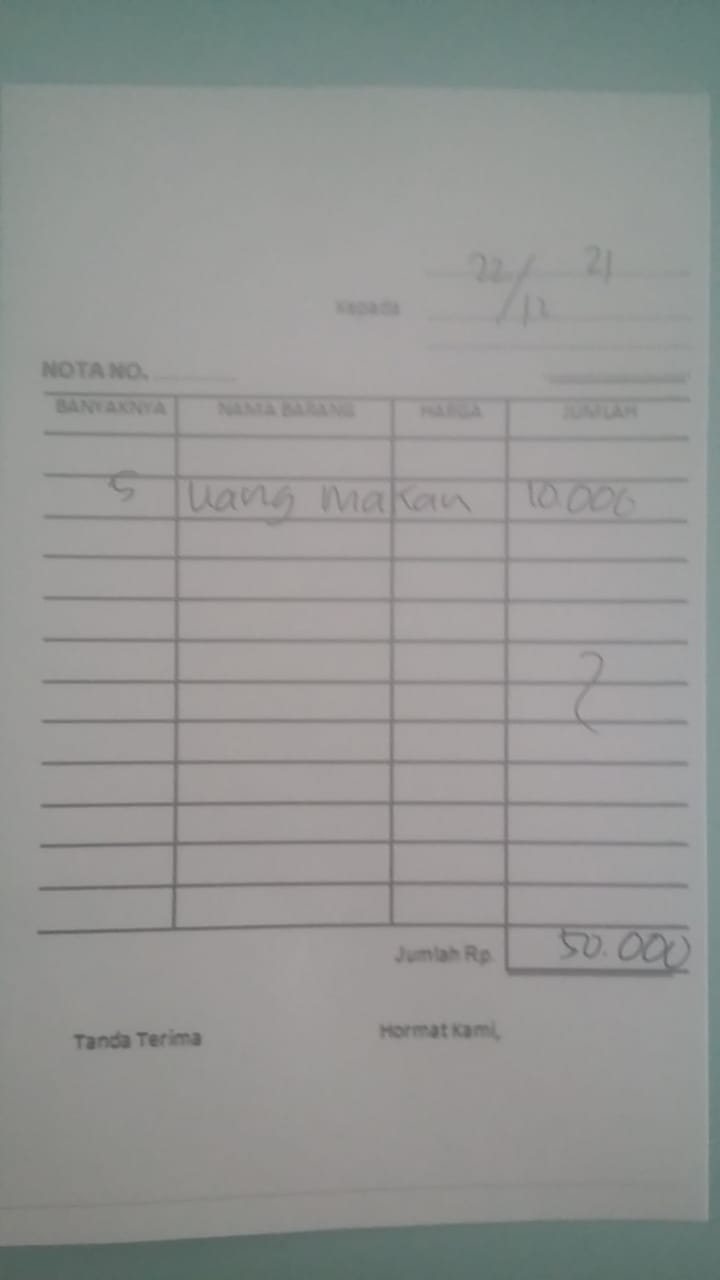 22/12 21
Kepada
NOTA NO.
BANYAKNYA NAMA BARANG HARGA JUMLAH
5 Uang makan 10.000
Jumlah Rp. 50.000
Tanda Terima Hormat Kami,